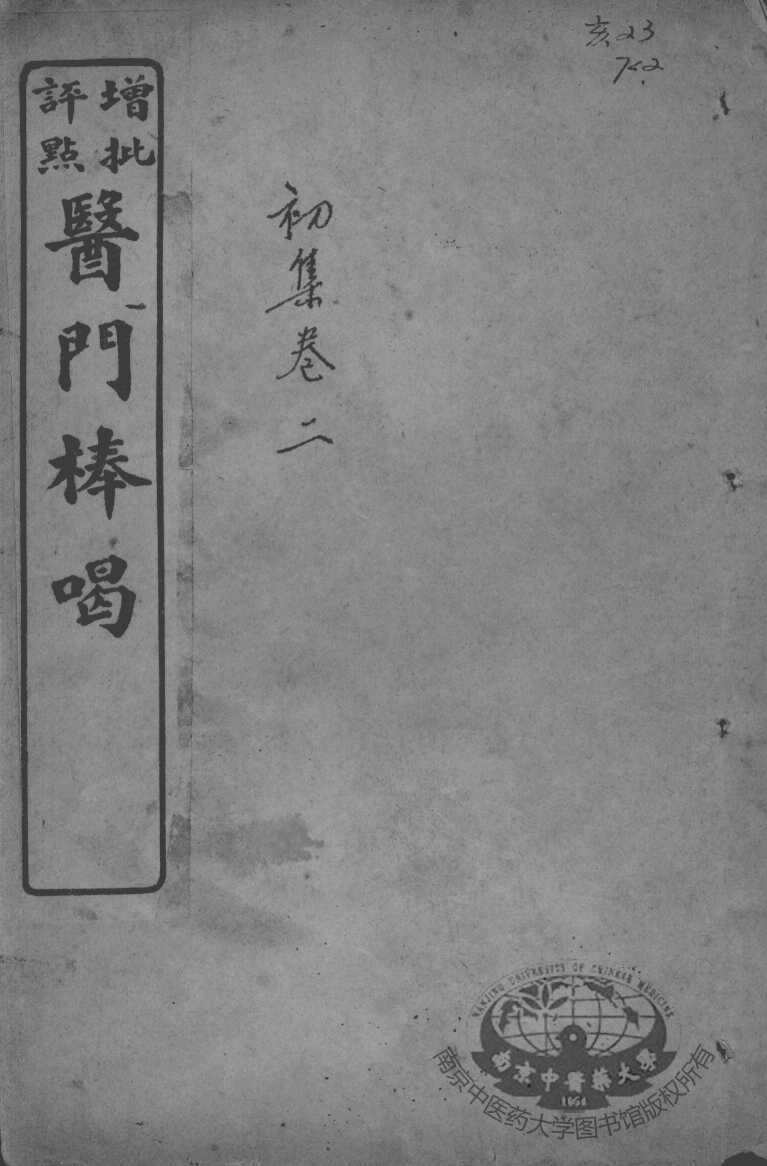 亥23
7<2
增批
評點
醫門棒喝
初集卷二
NANJING UNIVERSITY OF CHINESE MEDICINE
南京中醫藥大學
1954
南京中医药大学图书馆版权所有